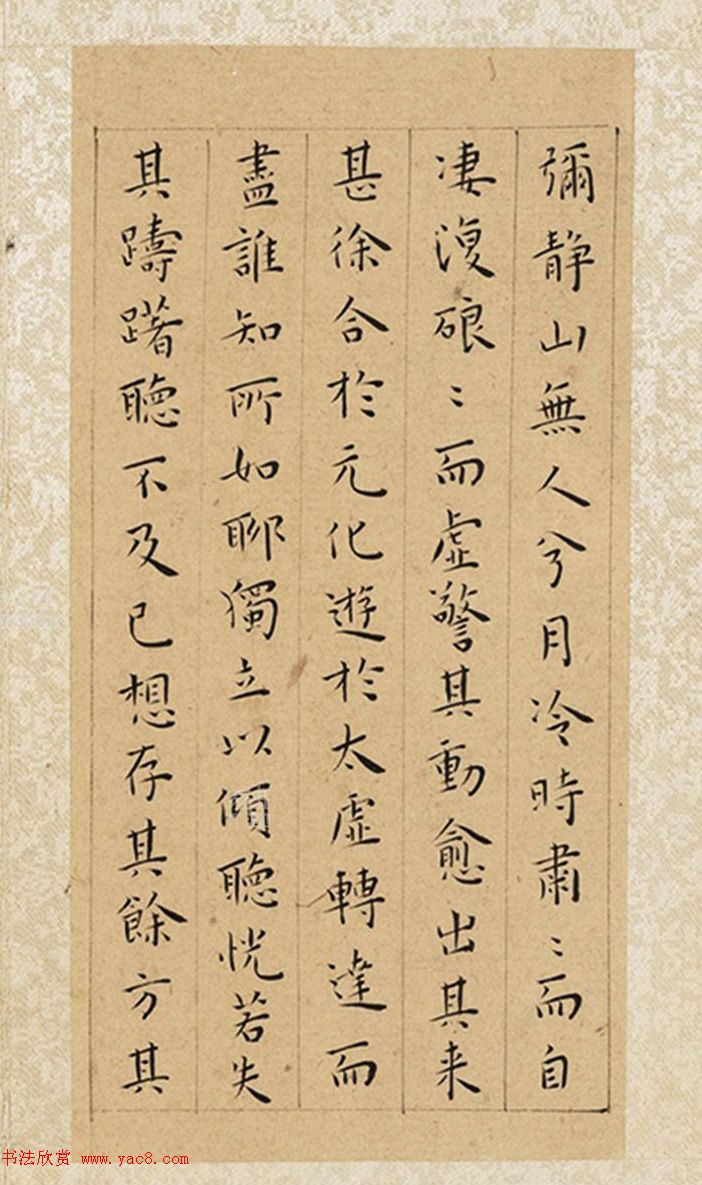 彌静山無人兮月冷時肅〻而自
凄復硠〻而虛警其動愈出其来
甚徐合於元化遊於太虛轉達而
盡誰知所如聊獨立以傾聽恍若失
其躊躇聽不及已想存其餘方其
书法欣赏 www.yac8.com